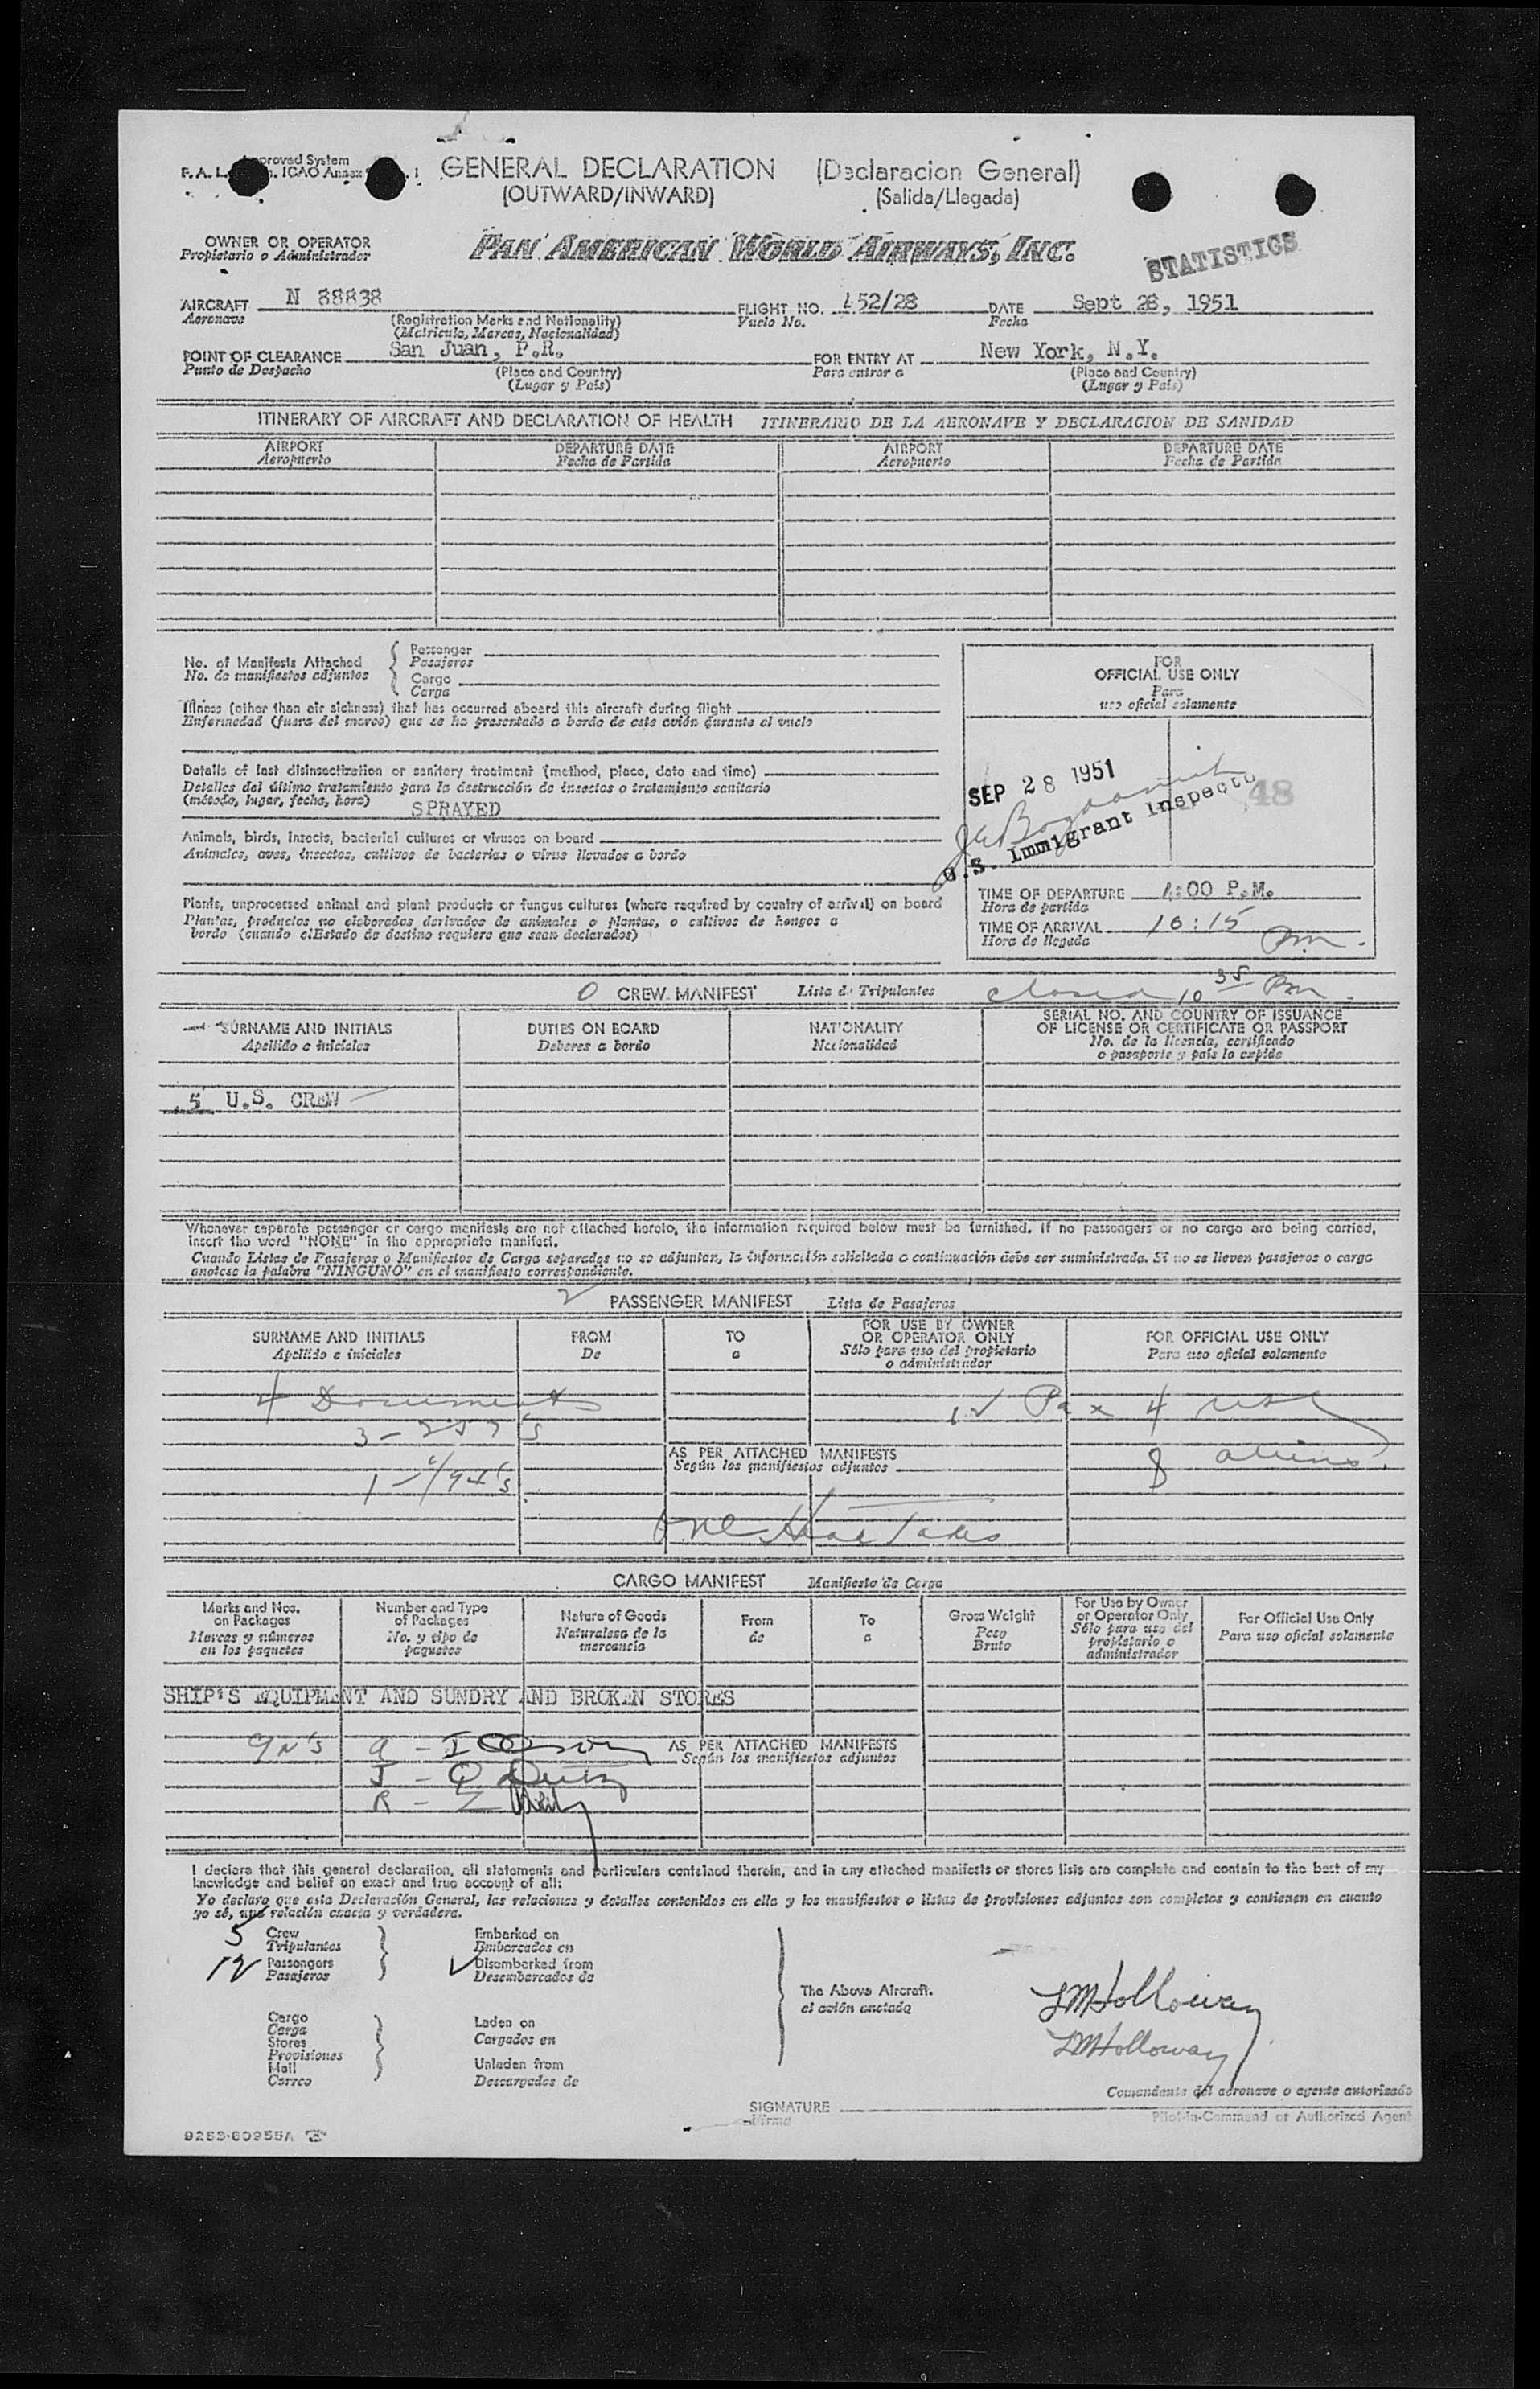 Approved System
F. A. L. ICAO Annex
GENERAL DECLARATION (Declaracion General)
(OUTWARD/INWARD) (Salida/Llegada)
OWNER OR OPERATOR
Propietario o Administrador
PAN AMERICAN WORLD AIRWAYS, INC.
STATISTICS
AIRCRAFT N 88838 FLIGHT NO. 452/28 DATE Sept 28, 1951
Aeronave (Registration Marks and Nationality) Vuelo No. Fecha
(Matricula, Marcas, Nacionalidad)
POINT OF CLEARANCE San Juan, P.R. FOR ENTRY AT New York, N.Y.
Punto de Despacho (Place and Country) Para entrar a (Place and Country)
(Lugar y País) (Lugar y País)
ITINERARY OF AIRCRAFT AND DECLARATION OF HEALTH ITINERARIO DE LA AERONAVE Y DECLARACION DE SANIDAD
AIRPORT DEPARTURE DATE AIRPORT DEPARTURE DATE
Aeropuerto Fecha de Partida Aeropuerto Fecha de Partida
No. of Manifests Attached
No. de manifiestos adjuntos
Passenger
Pasajeros
Cargo
Carga
Illness (other than air sickness) that has occurred aboard this aircraft during flight
Enfermedad (fuera del mareo) que se ha presentado a bordo de este avión durante el vuelo
Details of last disinsectization or sanitary treatment (method, place, date and time)
Detalles del último tratamiento para la destrucción de insectos o tratamiento sanitario
(método, lugar, fecha, hora)
SPRAYED
Animals, birds, insects, bacterial cultures or viruses on board
Animales, aves, insectos, cultivos de bacterias o virus llevados a bordo
Plants, unprocessed animal and plant products or fungus cultures (where required by country of arrival) on board
Plantas, productos no elaborados derivados de animales o plantas, o cultivos de hongos a
bordo (cuando el Estado de destino requiere que sean declarados)
FOR
OFFICIAL USE ONLY
Para
uso oficial solamente
SEP 28 1951
48
U.S. Immigrant Inspector
TIME OF DEPARTURE 4:00 P.M.
Hora de partida
TIME OF ARRIVAL 10:15 Pm.
Hora de llegada
0 CREW MANIFEST Lista de Tripulantes closed 10 35 Pm.
SURNAME AND INITIALS DUTIES ON BOARD NATIONALITY SERIAL NO. AND COUNTRY OF ISSUANCE
OF LICENSE OR CERTIFICATE OR PASSPORT
Apellido e iniciales Deberes a bordo Nacionalidad No. de la licencia, certificado
o pasaporte y país lo expide
5 U.S. CREW
Whenever separate passenger or cargo manifests are not attached hereto, the information required below must be furnished. If no passengers or no cargo are being carried,
insert the word "NONE" in the appropriate manifest.
Cuando Listas de Pasajeros o Manifiestos de Carga separados no se adjunten, la información solicitada a continuación debe ser suministrada. Si no se lleven pasajeros o carga
anotese la palabra "NINGUNO" en el manifiesto correspondiente.
2
PASSENGER MANIFEST Lista de Pasajeros
SURNAME AND INITIALS FROM TO FOR USE BY OWNER
OR OPERATOR ONLY FOR OFFICIAL USE ONLY
Apellido e iniciales De a Sólo para uso del propietario
o administrador Para uso oficial solamente
4 Documents 12 Pax 4 USC
3 - 257's
8 aliens.
AS PER ATTACHED MANIFESTS
Según los manifiestos adjuntos
One Head Tax
CARGO MANIFEST Manifiesto de Carga
Marks and Nos.
on Packages
Marcas y números
en los paquetes
Number and Type
of Packages
No. y tipo de
paquetes
Nature of Goods
Naturaleza de la
mercancía
From
de
To
a
Gross Weight
Peso
Bruto
For Use by Owner
or Operator Only
Sólo para uso del
propietario o
administrador
For Official Use Only
Para uso oficial solamente
SHIP'S EQUIPMENT AND SUNDRY AND BROKEN STORES
AS PER ATTACHED MANIFESTS
Según los manifiestos adjuntos
I declare that this general declaration, all statements and particulars contained therein, and in any attached manifests or stores lists are complete and contain to the best of my
knowledge and belief an exact and true account of all:
Yo declaro que esta Declaración General, las relaciones y detalles contenidos en ella y los manifiestos o listas de provisiones adjuntos son completos y contienen en cuanto
yo sé, una relación exacta y verdadera.
5 Crew
Tripulantes
12 Passengers
Pasajeros
Embarked on
Embarcados en
Disembarked from
Desembarcados de
Cargo
Carga
Stores
Provisiones
Mail
Correo
Laden on
Cargados en
Unladen from
Descargados de
The Above Aircraft.
el avión anotado
LM Holloway
LM Holloway
Comandante del aeronave o agente autorizado
SIGNATURE
Firma
Pilot-in-Command or Authorized Agent
9253-60955A